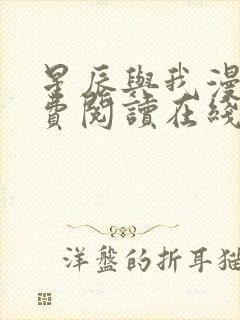 星辰與我漫
費閱讀在綫
洋盤的折耳猫